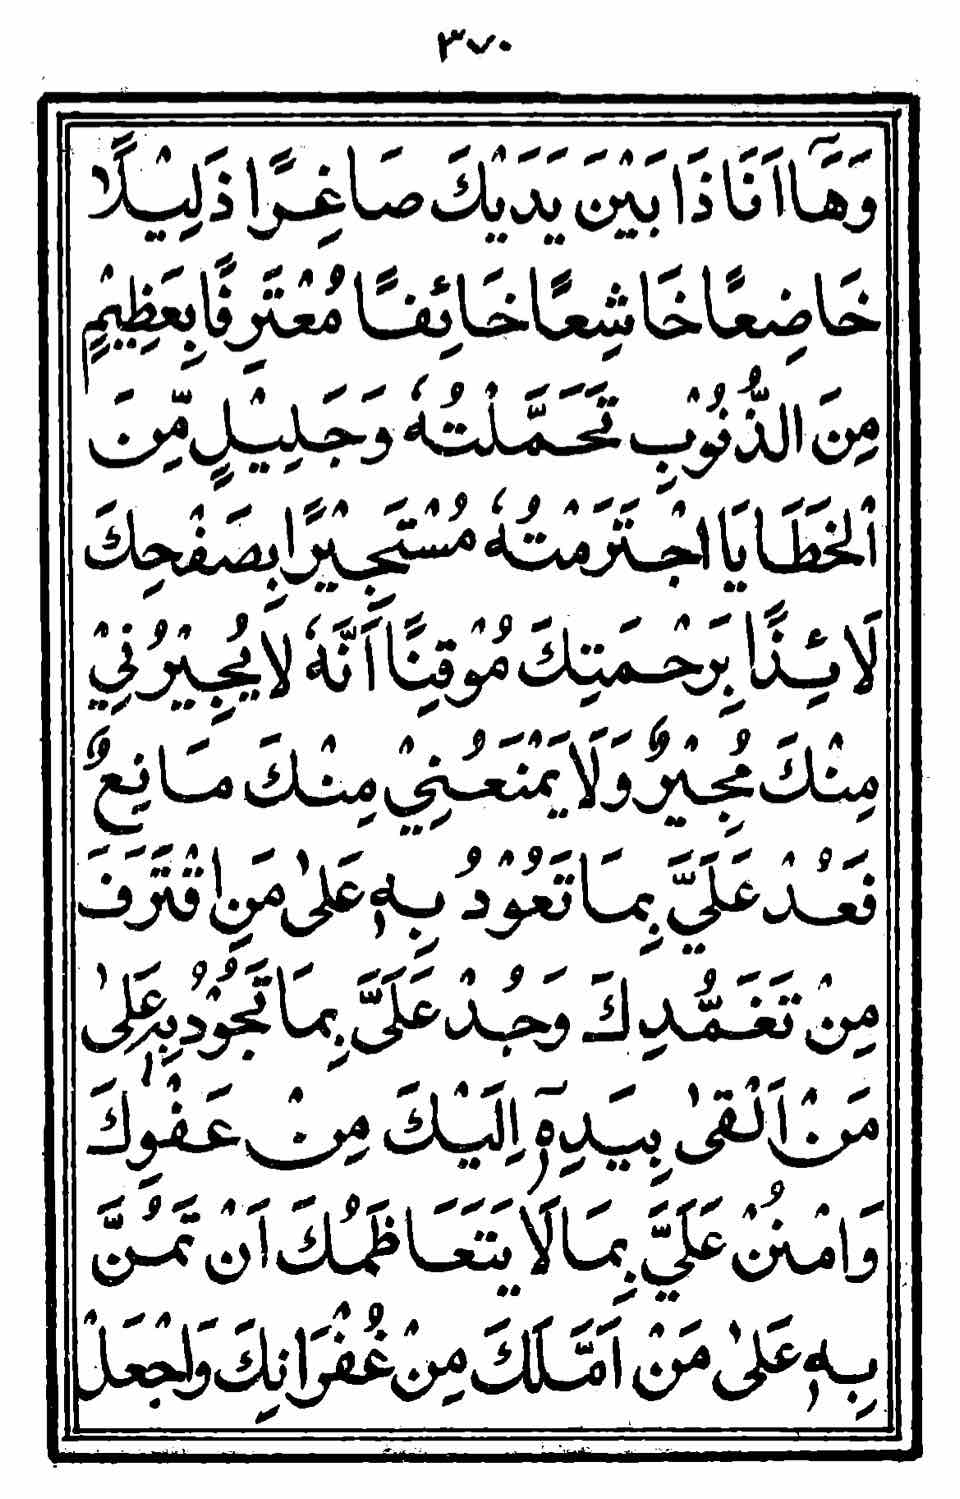 ٣٧٠
وَهَٓا اَنَا ذَا بَيْنَ يَدَيْكَ صَاغِرًا ذَلِيْلًا
خَاضِعًا خَاشِعًا خَائِفًا مُعْتَرِفًا بِعَظِيْمٍ
مِنَ الذُّنُوْبِ تَحَمَّلْتُهٗ وَجَلِيْلٍ مِّنَ
الْخَطَايَا اجْتَرَمْتُهٗ مُسْتَجِيْرًا بِصَفْحِكَ
لَائِذًا بِرَحْمَتِكَ مُوْقِنًا اَنَّهٗ لَا يُجِيْرُنِيْ
مِنْكَ مُجِيْرٌ وَلَا يَمْنَعُنِيْ مِنْكَ مَانِعٌ
فَعُدْ عَلَيَّ بِمَا تَعُوْدُ بِهٖ عَلىٰ مَنِ اقْتَرَفَ
مِنْ تَغَمُّدِكَ وَجُدْ عَلَيَّ بِمَا تَجُوْدُ بِهٖ عَلىٰ
مَنْ اَلْقىٰ بِيَدِهٖٓ اِلَيْكَ مِنْ عَفْوِكَ
وَامْنُنْ عَلَيَّ بِمَا لَا يَتَعَاظَمُكَ اَنْ تَمُنَّ
بِهٖ عَلىٰ مَنْ اَمَّلَكَ مِنْ غُفْرَانِكَ وَاجْعَلْ